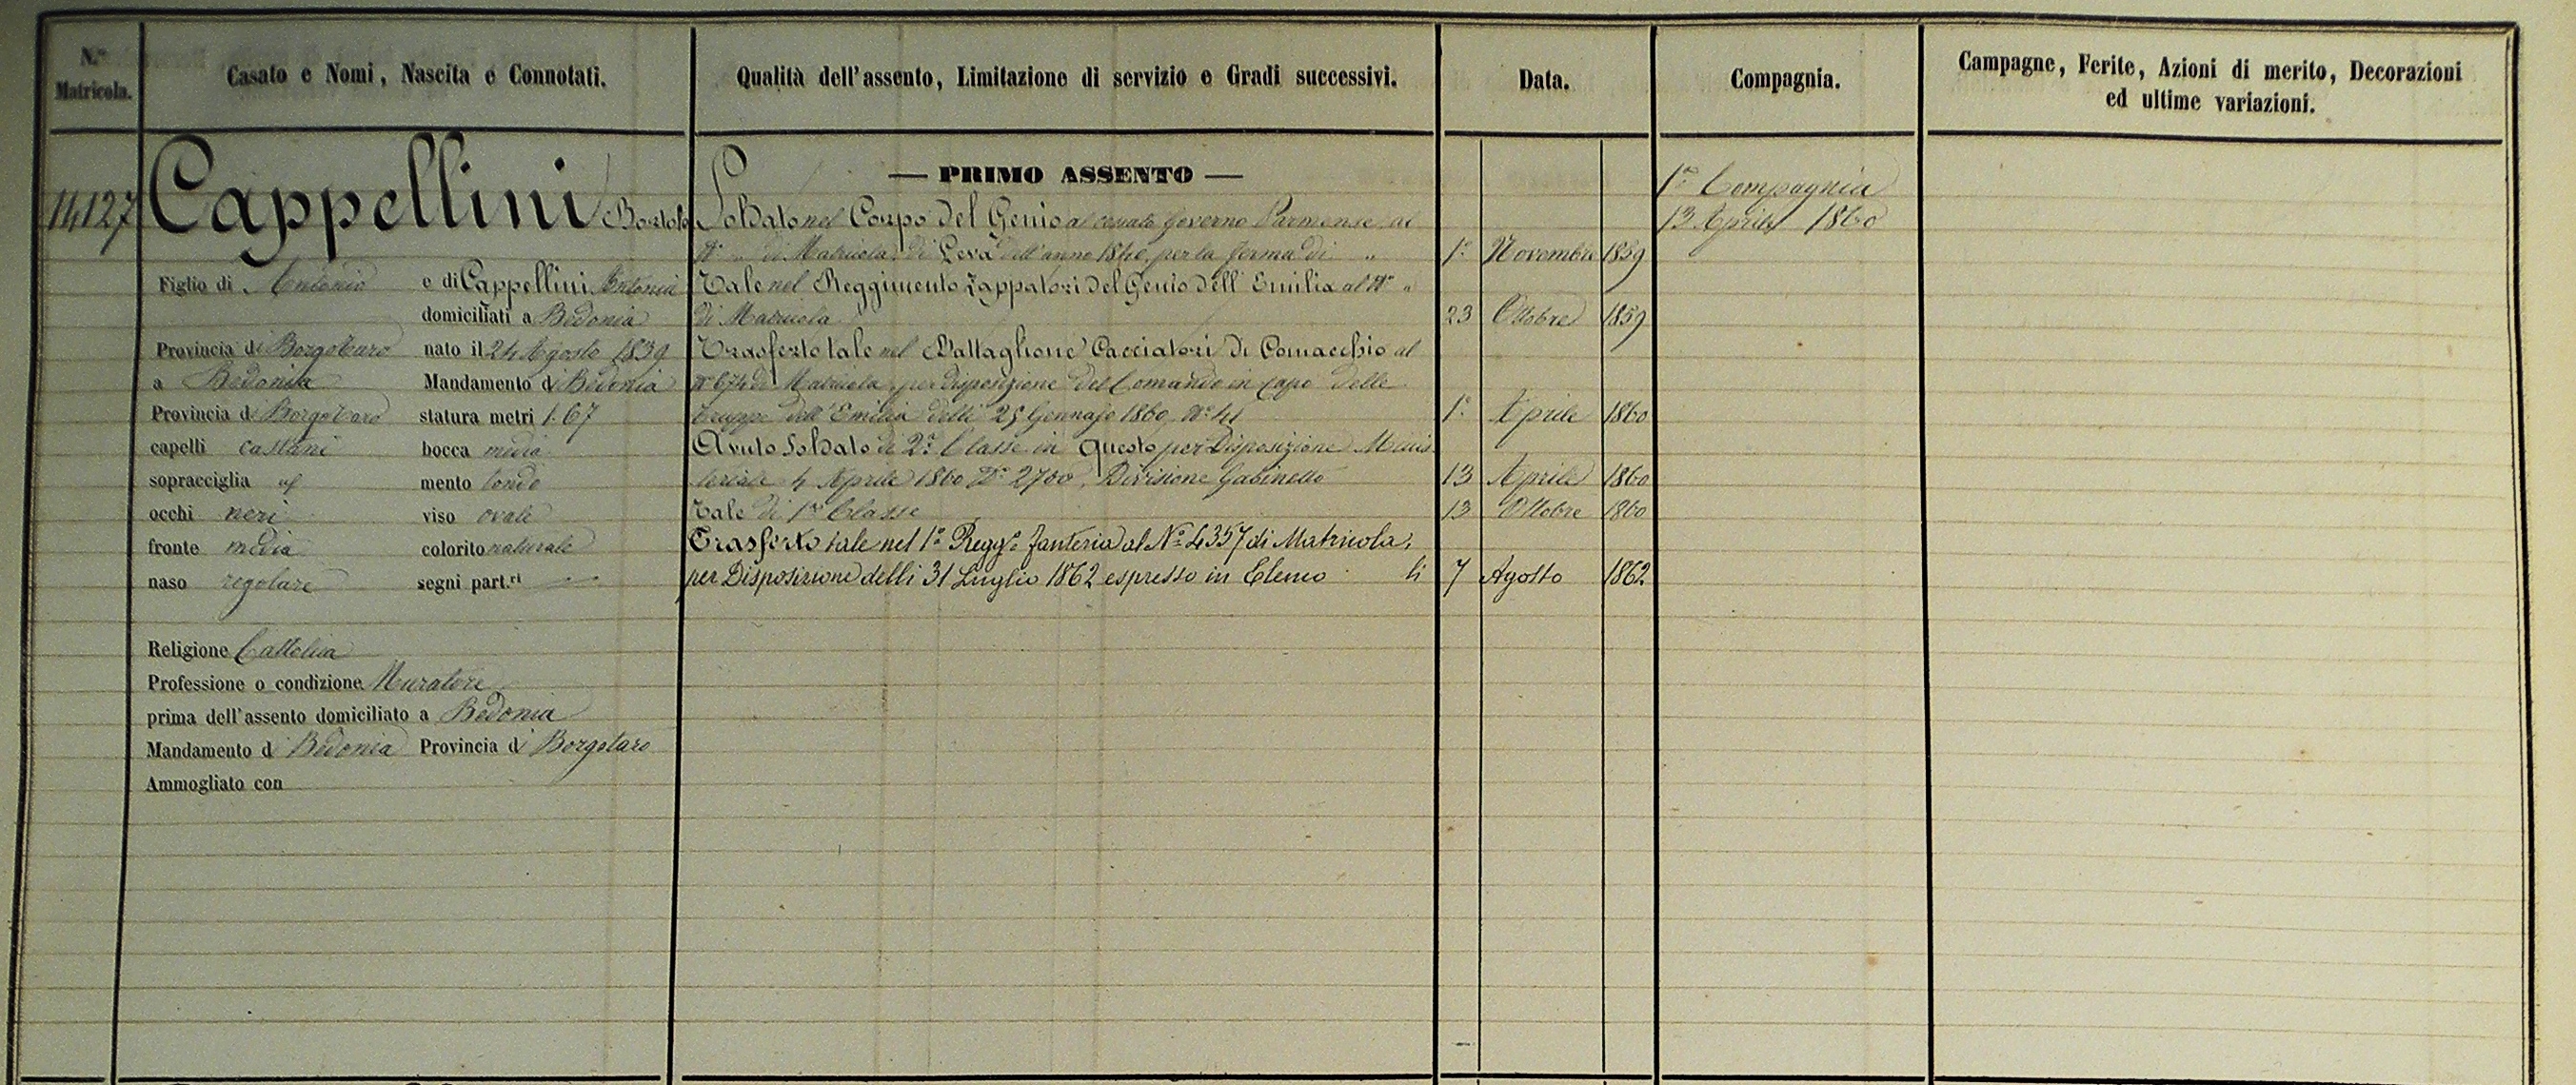 N.º Matricola.
Casato e Nomi, Nascita e Connotati.
Qualità dell'assento, Limitazione di servizio e Gradi successivi.
Data.
Compagnia.
Campagne, Ferite, Azioni di merito, Decorazioni
ed ultime variazioni.
14127
Cappellini Bortolo
Figlio di Antonio e di Cappellini Antonia
domiciliati a Bedonia
Provincia di Borgotaro nato il 24 Agosto 1839
a Bedonia Mandamento di Bedonia
Provincia di Borgotaro statura metri 1.67
capelli castani bocca media
sopracciglia mento tondo
occhi neri viso ovale
fronte media colorito naturale
naso regolare segni part.ri —
Religione Cattolica
Professione o condizione Muratore
prima dell'assento domiciliato a Bedonia
Mandamento di Bedonia Provincia di Borgotaro
Ammogliato con
— PRIMO ASSENTO —
Soldato nel Corpo del Genio al cessato Governo Parmense al
Nº " di Matricola, di Leva dell'anno 1840, per la ferma di " 1º Novembre 1859
Tale nel Reggimento Zappatori del Genio dell'Emilia al Nº "
di Matricola 23 Ottobre 1859
Trasferto tale nel Battaglione Cacciatori di Comacchio al
Nº 674 di Matricola, per disposizione del Comando in capo delle
truppe dell'Emilia delli 25 Gennajo 1860, Nº 41 1º Aprile 1860
Avuto Soldato di 2ª Classe in questo per Disposizione Minis
teriale 4 Aprile 1860 Nº 2700, Divisione Gabinetto 13 Aprile 1860
Tale di 1ª Classe 13 Ottobre 1860
Trasferto tale nel 1º Regg.º fanteria al Nº 4357 di Matricola,
per Disposizione delli 31 Luglio 1862 espresso in Elenco li 7 Agosto 1862
1ª Compagnia
13 Aprile 1860